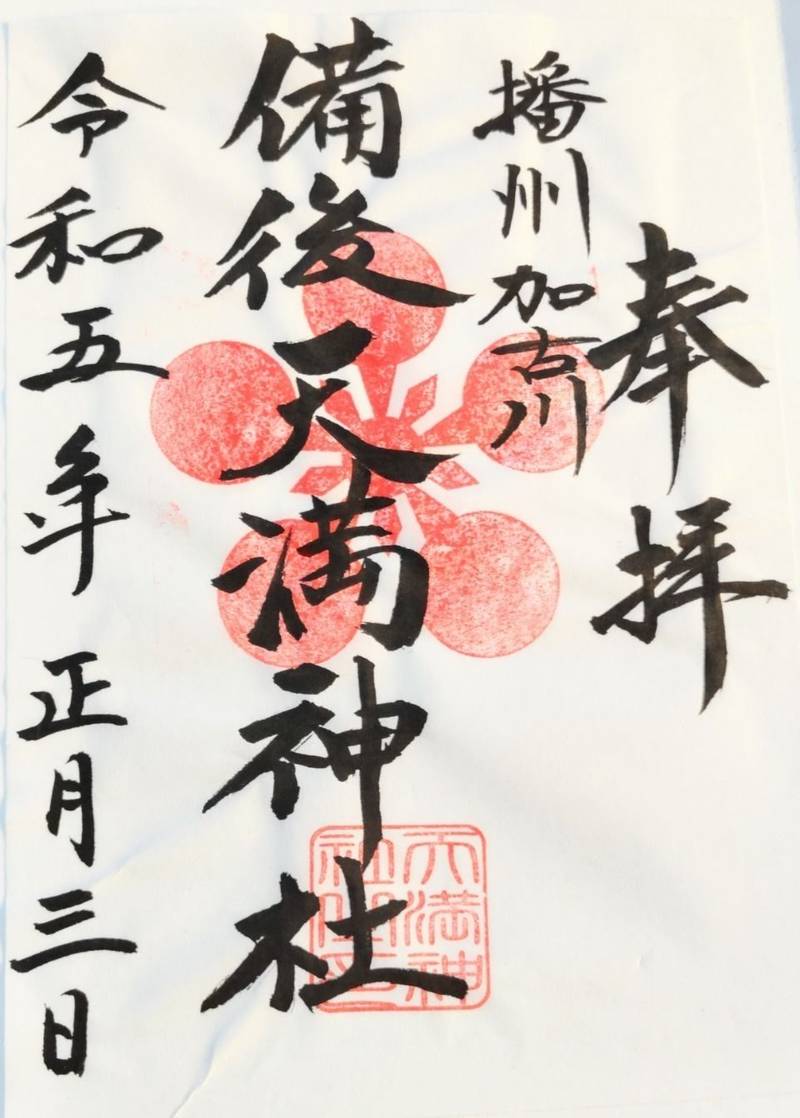 奉拝
播州加古川
備後天満神社
令和五年 正月三日
天満神
社